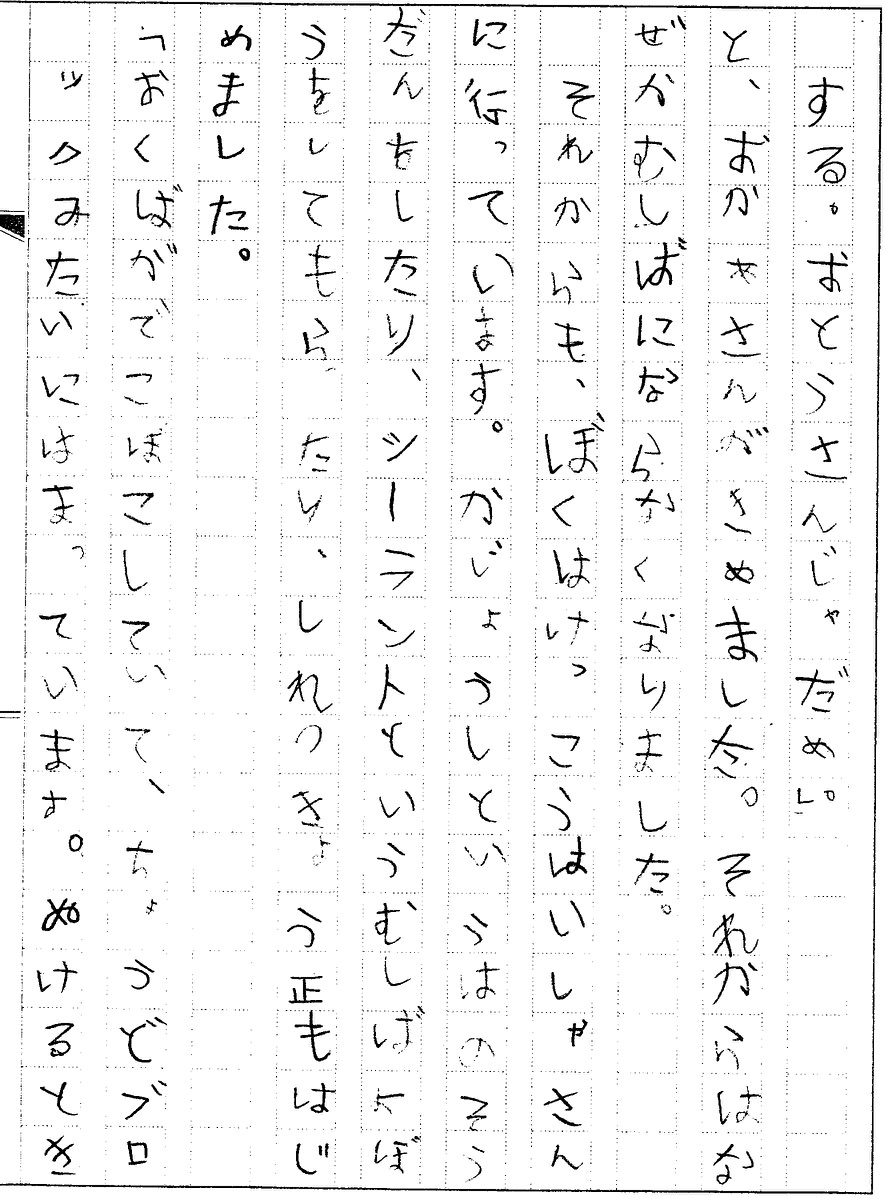 する。おとうさんじゃだめ」。
と、おかあさんがきめました。それからはな
ぜかむしばにならなくなりました。
それからも、ぼくはけっこうはいしゃさん
に行っています。かじょうしというはのそう
だんをしたり、シーラントというむしばよぼ
うをしてもらったり、しれつきょう正もはじ
めました。
「おくばがでこぼこしていて、ちょうどブロ
ックみたいにはまっています。ぬけるとき